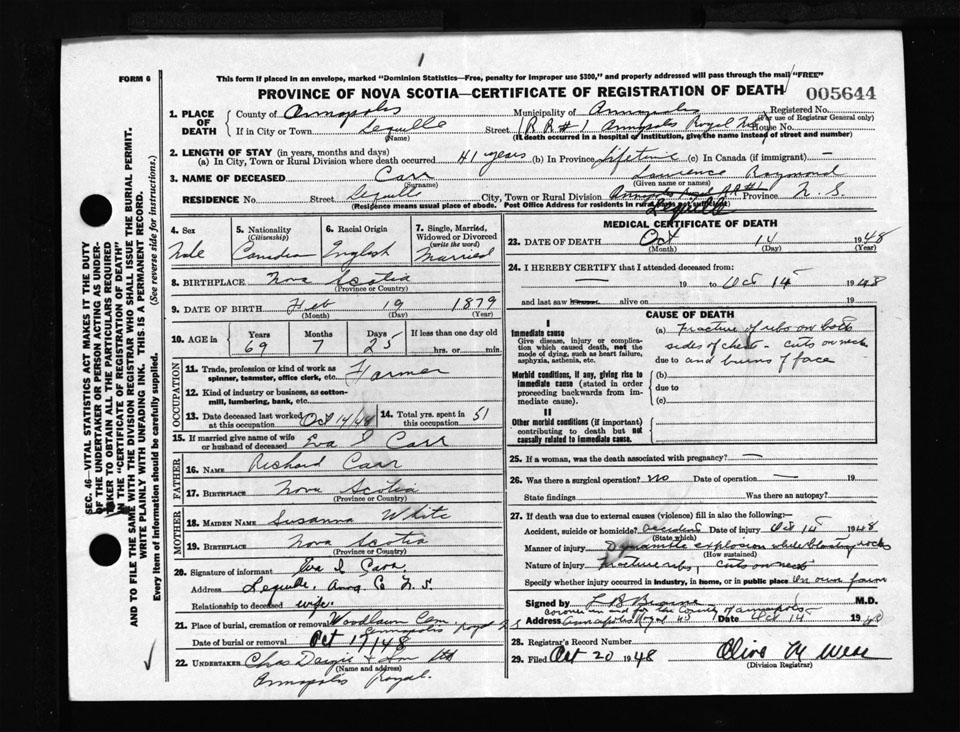 FORM 6
This form if placed in an envelope, marked "Dominion Statistics—Free, penalty for improper use $300," and properly addressed will pass through the mail "FREE"
PROVINCE OF NOVA SCOTIA—CERTIFICATE OF REGISTRATION OF DEATH
005644
SEC. 46—VITAL STATISTICS ACT MAKES IT THE DUTY
OF THE UNDERTAKER OR PERSON ACTING AS UNDER-
TAKER TO OBTAIN ALL THE PARTICULARS REQUIRED
IN THE "CERTIFICATE OF REGISTRATION OF DEATH"
AND TO FILE THE SAME WITH THE DIVISION REGISTRAR WHO SHALL ISSUE THE BURIAL PERMIT.
WRITE PLAINLY WITH UNFADING INK. THIS IS A PERMANENT RECORD.
Every item of information should be carefully supplied. (See reverse side for instructions.)
1. PLACE OF DEATH County of Annapolis Municipality of Annapolis Registered No.
(For use of Registrar General only)
If in City or Town Lequille Street (RR#1 Annapolis Royal NS) House No.
(Name) (If death occurred in a hospital or institution, give the name instead of street and number)
2. LENGTH OF STAY (in years, months and days)
(a) In City, Town or Rural Division where death occurred 41 years (b) In Province Lifetime (c) In Canada (if immigrant) —
3. NAME OF DECEASED Carr Laurence Raymond
(Surname) (Given name or names)
RESIDENCE No. Street Lequille City, Town or Rural Division Annapolis Royal RR#1 Province N.S
(Residence means usual place of abode. Post Office Address for residents in rural areas not sufficient)
Lequille
4. Sex Male
5. Nationality (Citizenship) Canadian
6. Racial Origin English
7. Single, Married, Widowed or Divorced (write the word) Married
8. BIRTHPLACE Nova Scotia
(Province or Country)
9. DATE OF BIRTH Feb 19 1879
(Month) (Day) (Year)
10. AGE in Years 69 Months 7 Days 25 If less than one day old
hrs. or min.
OCCUPATION
11. Trade, profession or kind of work as spinner, teamster, office clerk, etc. Farmer
12. Kind of industry or business, as cotton-mill, lumbering, bank, etc.
13. Date deceased last worked at this occupation Oct 14/48
14. Total yrs. spent in 51
15. If married give name of wife or husband of deceased Eva I Carr
FATHER
16. NAME Richard Carr
17. BIRTHPLACE Nova Scotia
(Province or Country)
MOTHER
18. MAIDEN NAME Susanna White
19. BIRTHPLACE Nova Scotia
(Province or Country)
20. Signature of informant Eva I Carr.
Address Lequille, Anna Co N.S.
Relationship to deceased wife.
21. Place of burial, cremation or removal Woodlawn Cem.
Annapolis Royal N S
Date of burial or removal Oct 17/48
22. UNDERTAKER Chas Dargie & Son Ltd
(Name and address)
Annapolis Royal.
MEDICAL CERTIFICATE OF DEATH
23. DATE OF DEATH Oct 14 1948
(Month) (Day) (Year)
24. I HEREBY CERTIFY that I attended deceased from:
— 19 to Oct 14 1948
and last saw alive on 19
CAUSE OF DEATH
I
Immediate cause
Give disease, injury or complication which caused death, not the mode of dying, such as heart failure, asphyxia, asthenia, etc.
(a) Fracture of ribs on both
sides of chest - cuts on neck
due to and burns of face
Morbid conditions, if any, giving rise to immediate cause (stated in order proceeding backwards from immediate cause).
(b)
due to
(c)
II
Other morbid conditions (if important) contributing to death but not causally related to immediate cause.
25. If a woman, was the death associated with pregnancy? —
26. Was there a surgical operation? No Date of operation — 19
State findings Was there an autopsy?
27. If death was due to external causes (violence) fill in also the following:—
Accident, suicide or homicide? Accident Date of injury Oct 14 1948
(State which)
Manner of injury Dynamite explosion while blasting rocks
(How sustained)
Nature of injury Fracture ribs, cuts on neck
Specify whether injury occurred in industry, in home, or in public place In own farm
Signed by M.D.
Coroner in and for the County of Annapolis
Address Annapolis Royal NS Date Oct 15 1948
28. Registrar's Record Number
29. Filed Oct 20 1948
(Division Registrar)